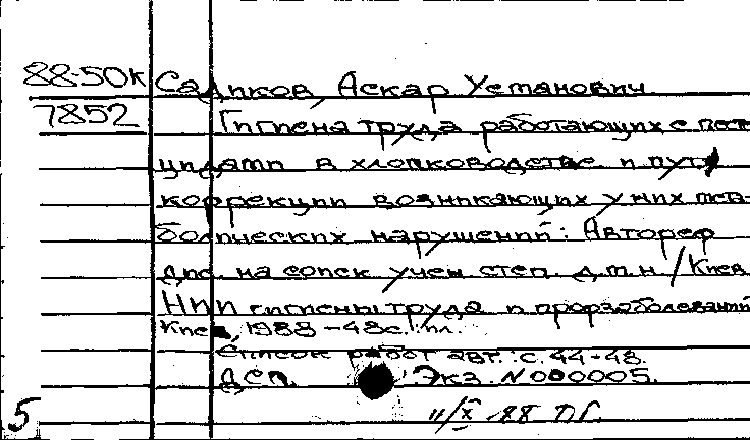 88-50к Садиков, Аскар Усманович
7852 Гигиена труда работающих с пести-
цидами в хлопководстве и пути
коррекции возникающих у них мета-
болических нарушений: Автореф
дис. на соиск учен степ д.м.н / Киев
НИИ гигиены труда и профзаболеваний
Киев, 1988 - 48с. ил.
Список работ авт.: с. 44-48.
ДСП. Экз. N 000005.
5 11/X 88